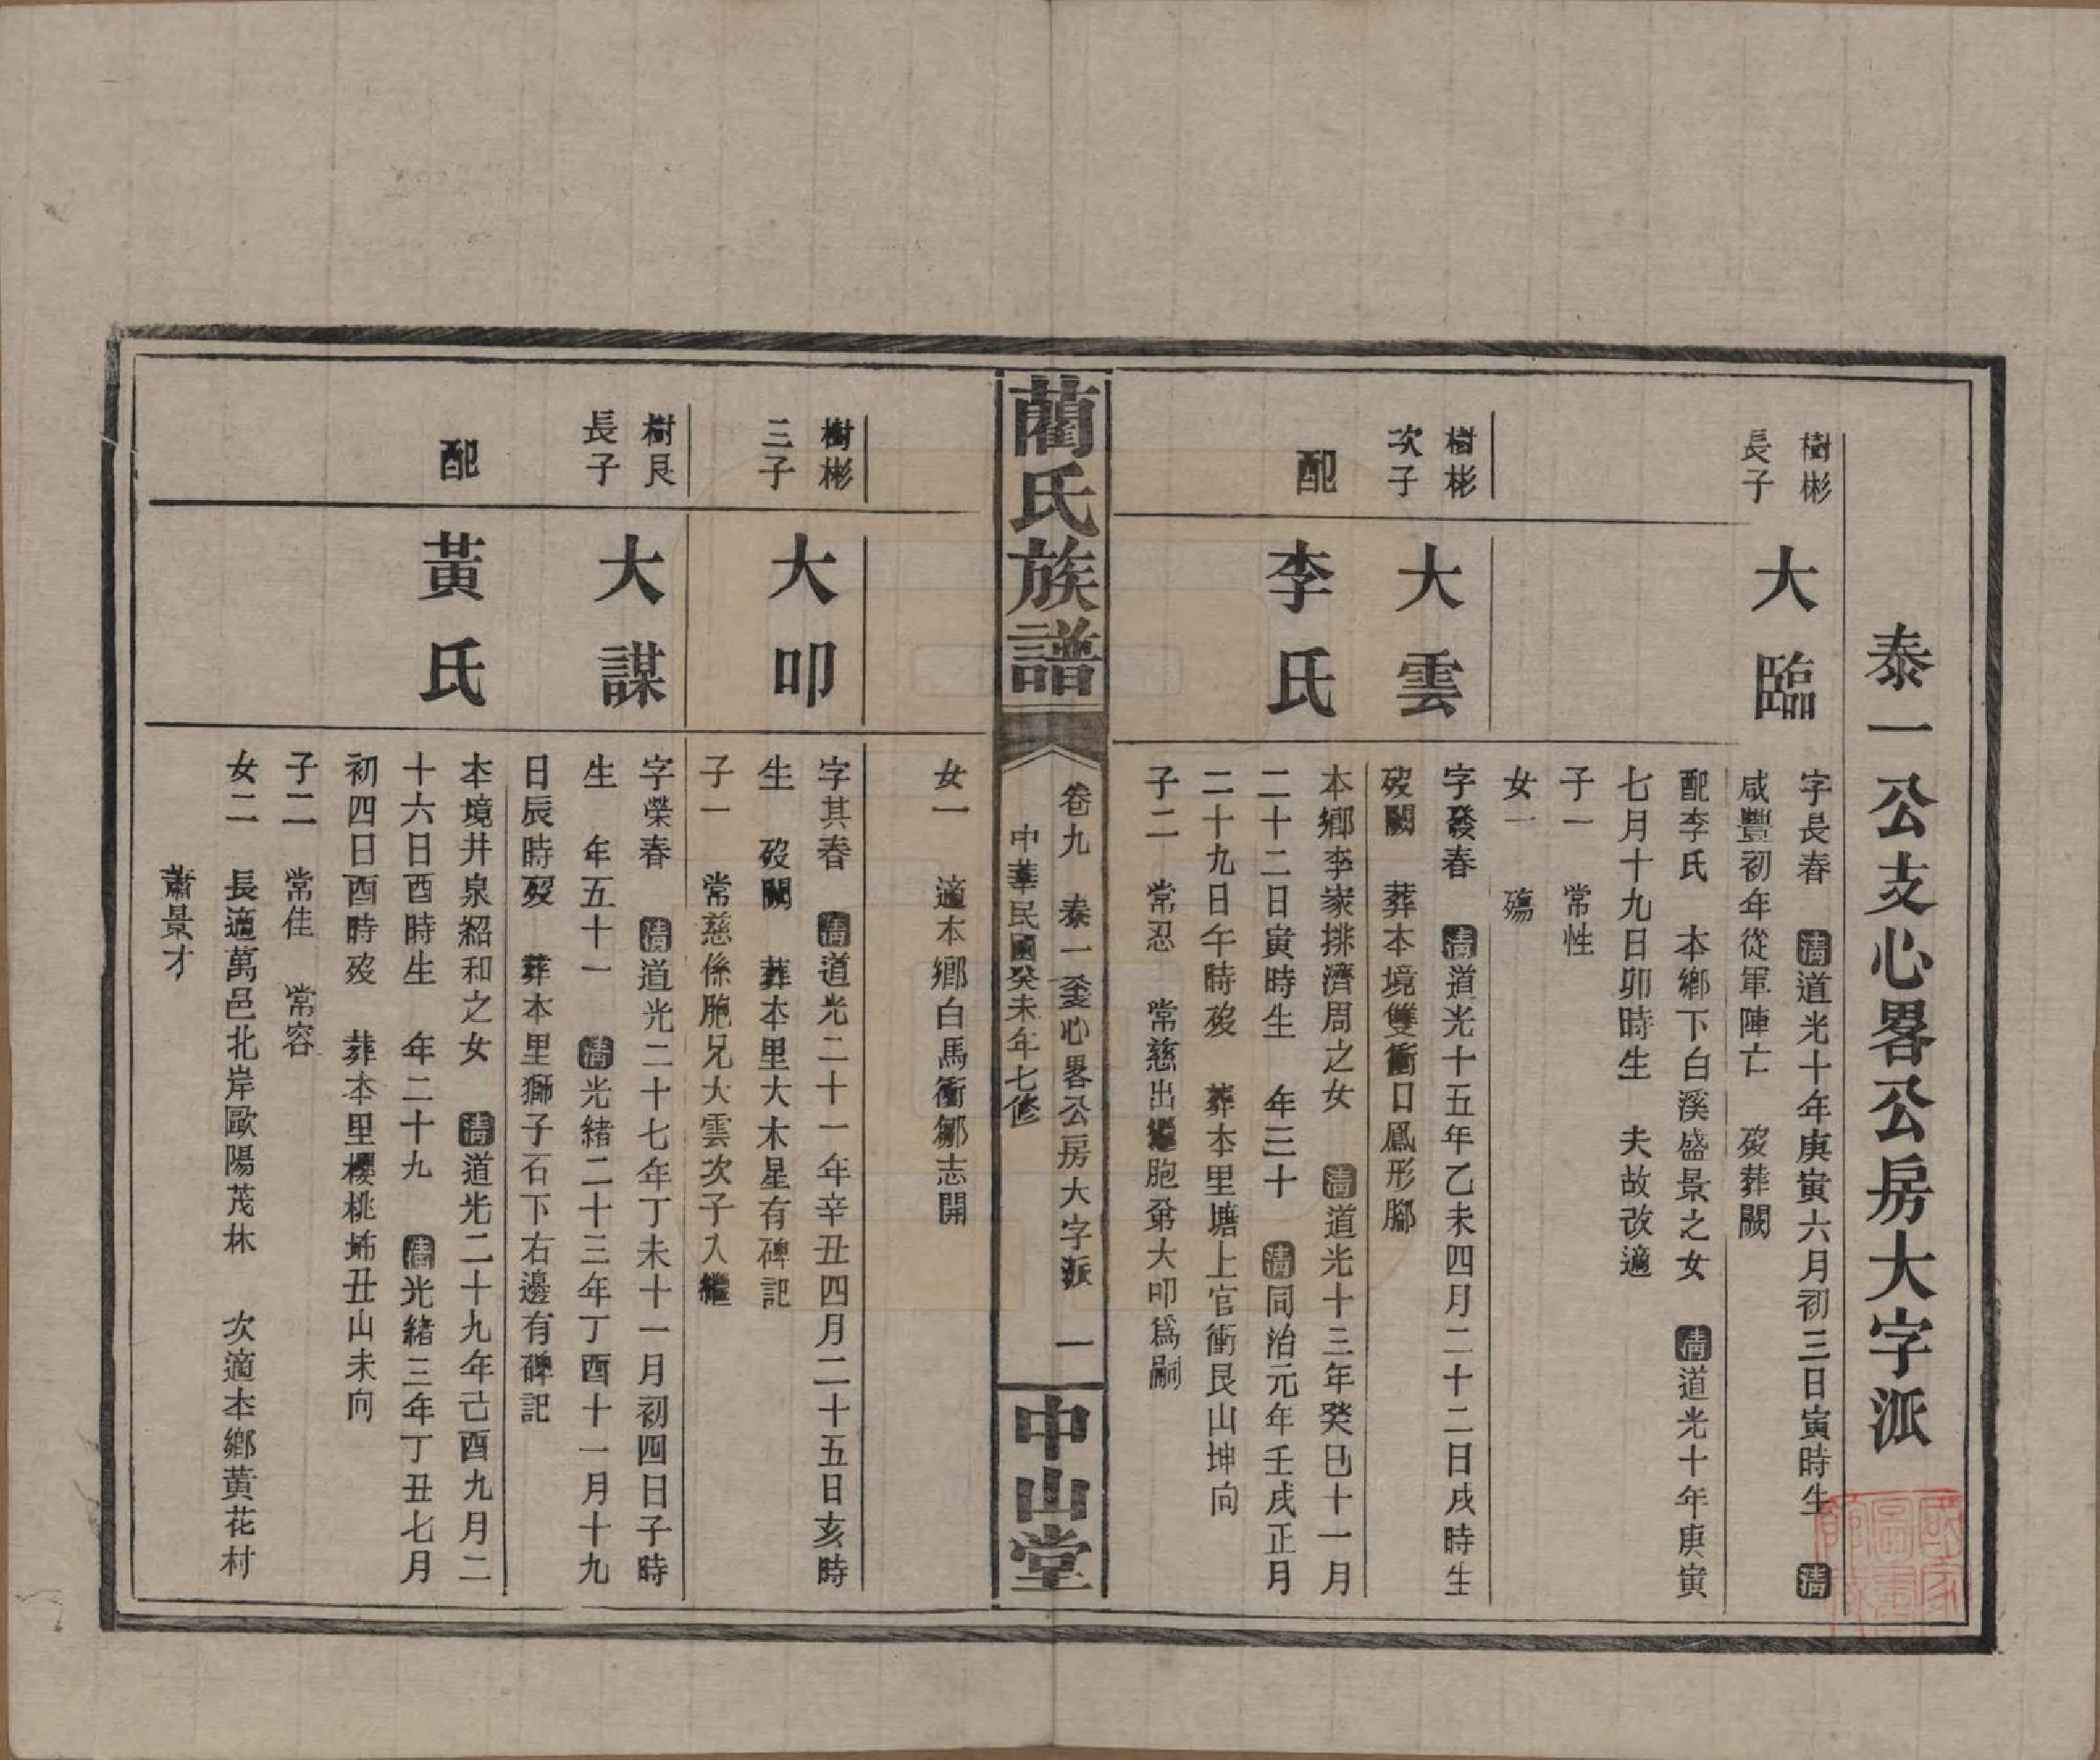 泰一公支心畧公房大字派
樹彬
長子
大臨
字長春 清道光十年庚寅六月初三日寅時生 清
咸豐初年從軍陣亡 歿葬闕
配李氏 本鄉下白溪盛景之女 清道光十年庚寅
七月十九日卯時生 夫故改適
子一 常性
女一 殤
樹彬
次子
大雲
字發春 清道光十五年乙未四月二十二日戌時生
歿闕 葬本境雙衝口鳳形腳
配
李氏
本鄉李家排濟周之女 清道光十三年癸巳十一月
二十二日寅時生 年三十 清同治元年壬戌正月
二十九日午時歿 葬本里塘上官衝艮山坤向
子二 常忍 常慈出繼胞弟大叩爲嗣
藺氏族譜
卷九 泰一支心畧公房大字派 一
中華民國癸未年七修
中山堂
女一 適本鄉白馬衝鄒志開
樹彬
三子
大叩
字其春 清道光二十一年辛丑四月二十五日亥時
生 歿闕 葬本里大木星有碑記
子一 常慈係胞兄大雲次子入繼
樹艮
長子
大謀
字榮春 清道光二十七年丁未十一月初四日子時
生 年五十一 清光緒二十三年丁酉十一月十九
日辰時歿 葬本里獅子石下右邊有碑記
配
黃氏
本境井泉紹和之女 清道光二十九年己酉九月二
十六日酉時生 年二十九 清光緒三年丁丑七月
初四日酉時歿 葬本里櫻桃㘵丑山未向
子二 常佳 常容
女二 長適萬邑北岸歐陽茂林 次適本鄉黃花村
蕭景才